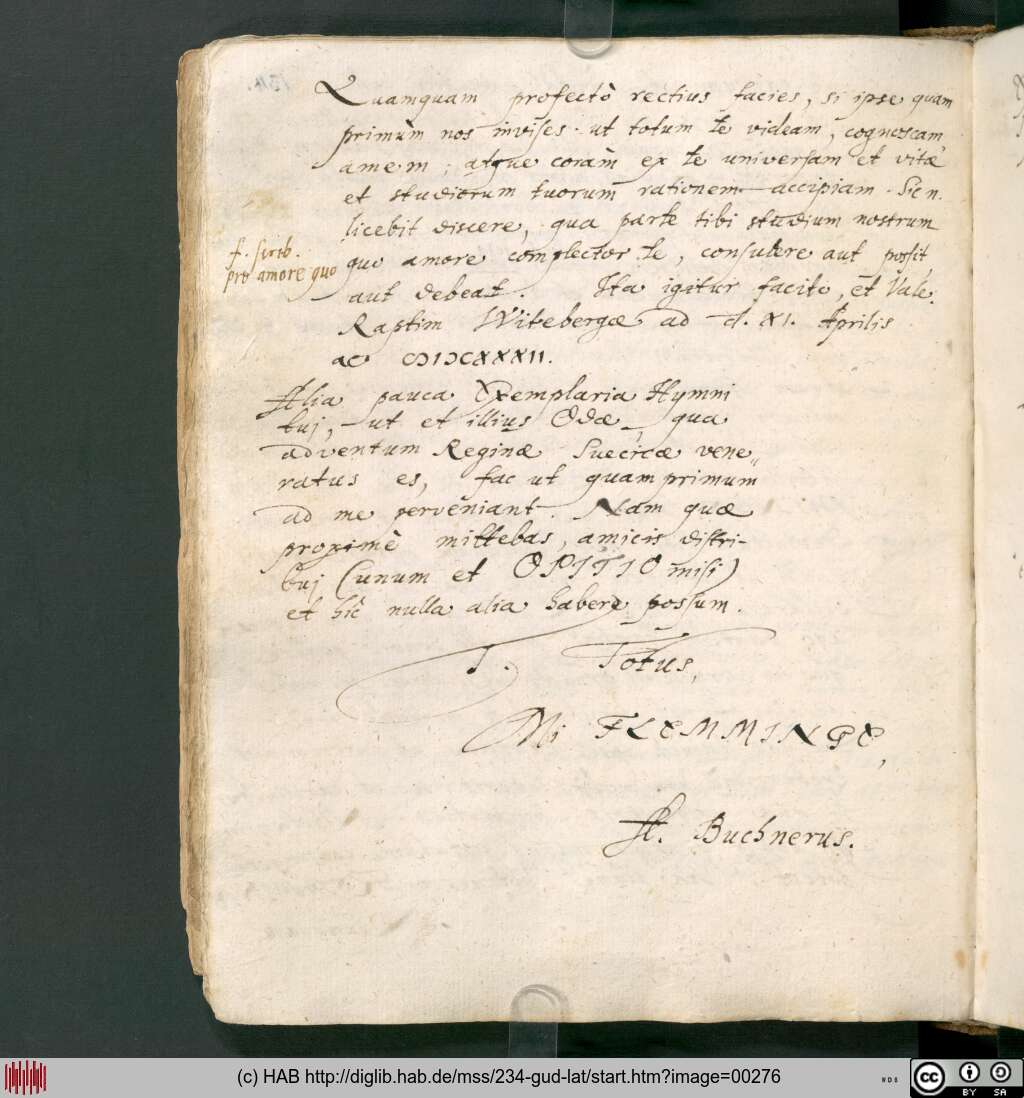 Quamquam profectò rectius facies, si ipse quam
primùm nos invises. ut totum te videam, cognoscam
amem; atque coràm ex te universam et vitæ
et studiorum tuorum rationem accipiam. Sic n.
licebit discere, qua parte tibi studium nostrum
f. scrib.
pro amore quo
quo amore complector te, consulere aut possit
aut debeat. Ita igitur facito, et Vale.
Raptim Witebergæ ad d. XI. Aprilis
ao CIↃIↃCXXXII.
Alia pauca Exemplaria Hymni
tuj, ut et illius Odæ, qua
adventum Reginæ Suecicæ vene„
ratus es, fac ut quamprimum
ad me perveniant. Nam quæ
proximè mittebas, amicis distri-
buj (unum et OPITIO misi)
et hîc nulla alia habere possum.
T. Totus,
Mi FLEMMINGE,
A. Buchnerus.
(c) HAB http://diglib.hab.de/mss/234-gud-lat/start.htm?image=00276
cc BY SA